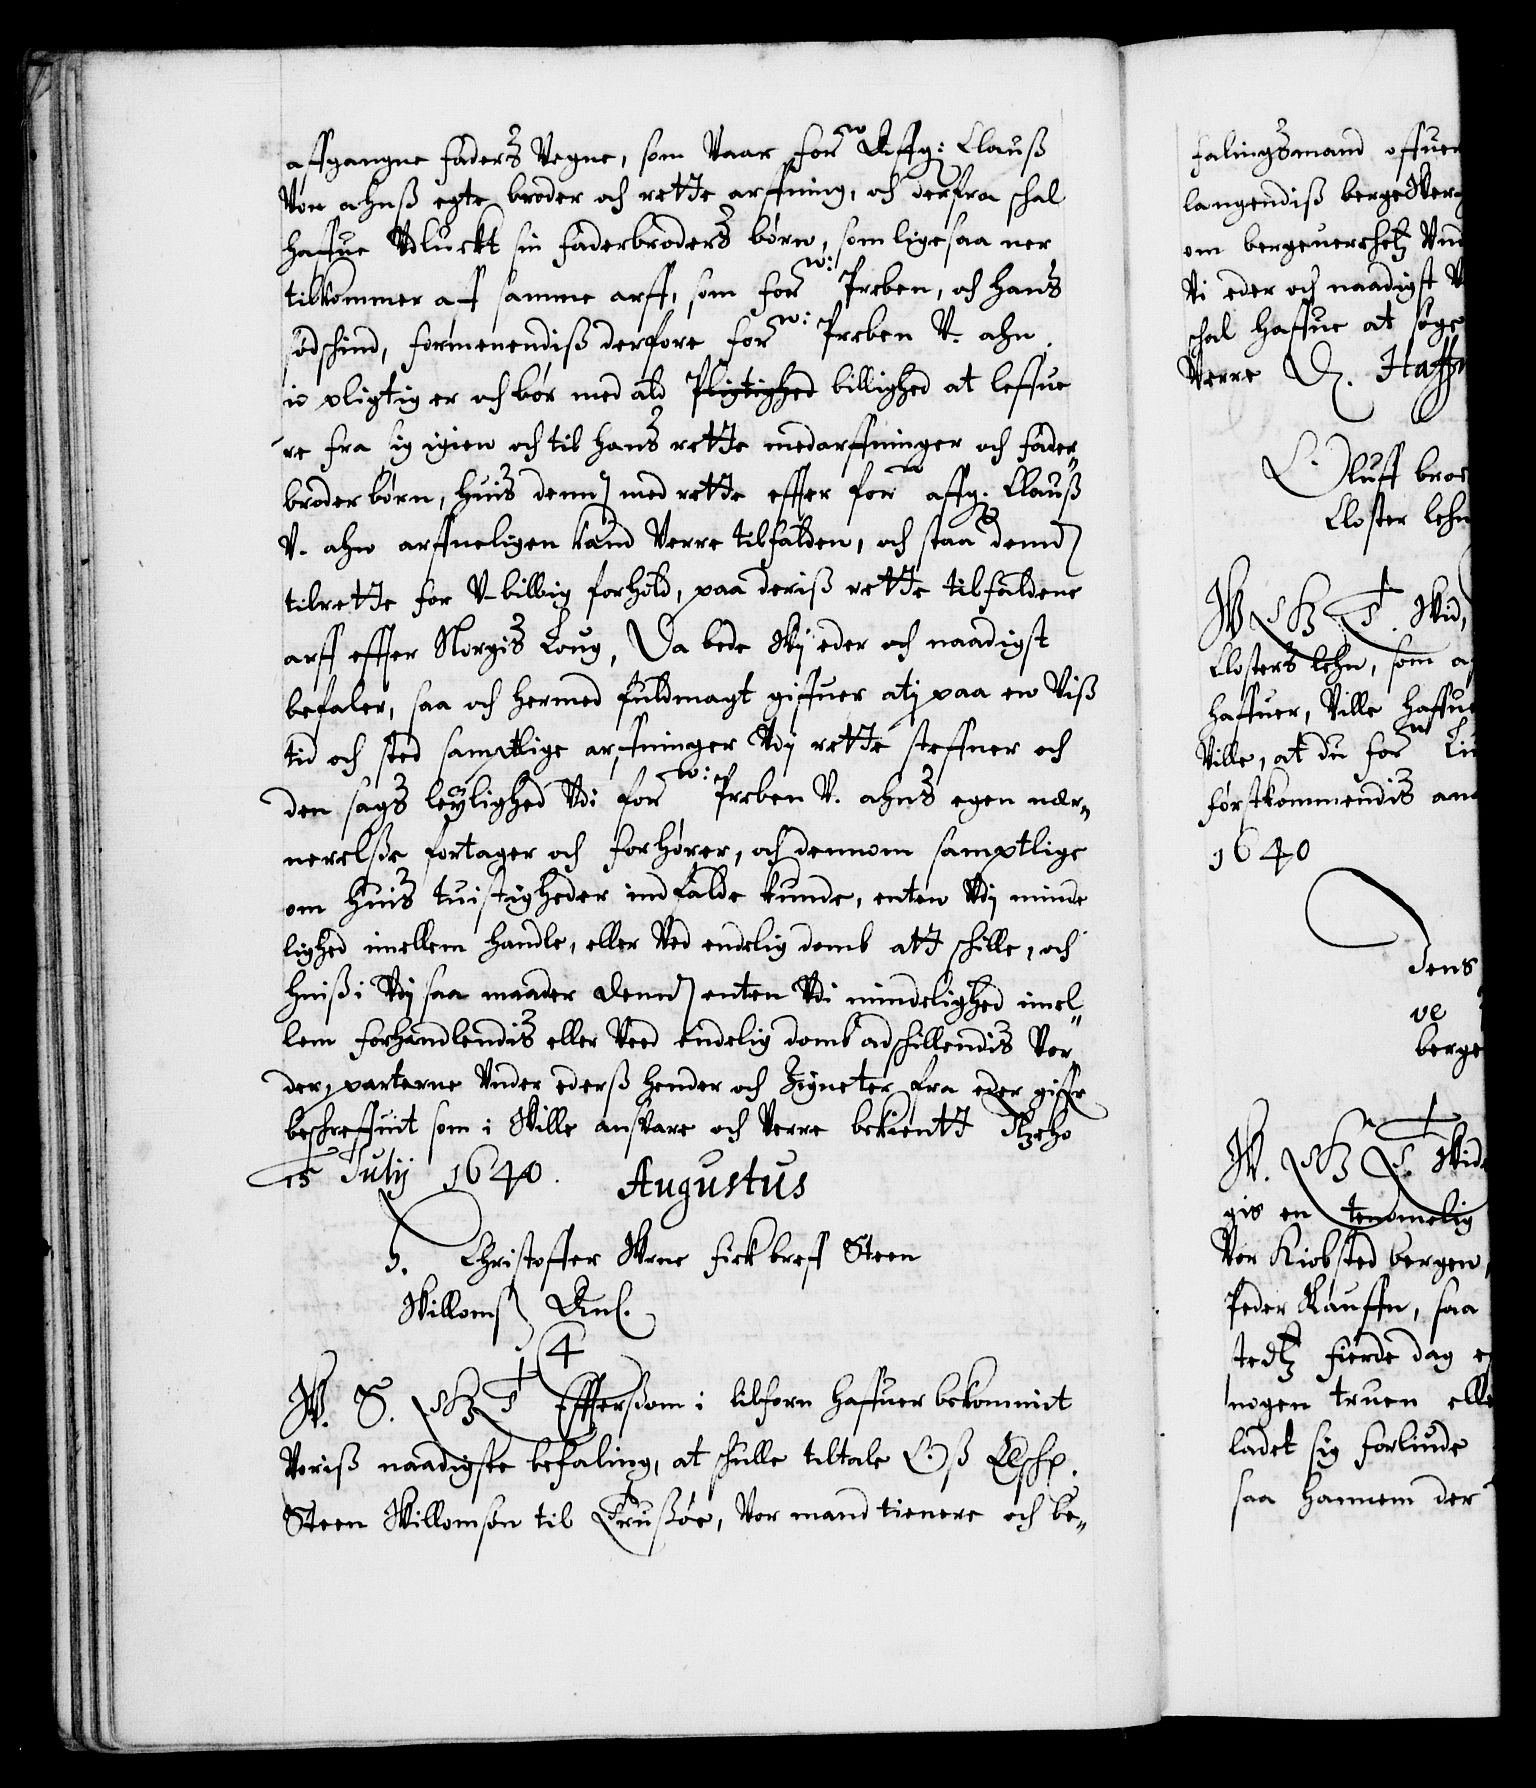 affgangne faders Vegne, som Vaar forn Affg: Clauß
Von ahnß egte broder och rette arffuing, och derfra schal
haffue Vdluckt sin faderbroders børn, som ligesaa ner
tilkommer aff samme arff, som forn: Preben, och hans
sødschind, formenendiß derfore forn: Preben V. ahn
io pligtig er och bør med ald Pligtighed billighed at leffue
re fra sig igien och til hans rette medarffuinger och fader„
broder børn, huis dennom med rette effter forn affg. Clauß
V. ahn arffueligen kand Verre tilfalden, och staa dennom
tilrette for V-billig forhold, paa deriß rette tilfaldene
arff effter Norgis Loug, Da bede Wij eder och naadigst
befaler, saa och hermed fuldmagt giffuer atj paa en Viß
tid och sted samptlige arffuinger Vdj rette steffner och
den sags leylighed Vdi forn: Preben V. ahns egen nær„
nerelße fortager och forhører, och dennom samptlige
om huis tuistigheder indfalde kunde, enten Vdj minde
lighed imellem handle, eller Ved endelig domb att schille, och
huiß i Vdj saa maader dennom enten Vdi mindelighed imel„
lem forhandlendis eller Veed endelig domb adschillendis Vor„
der, parterne Vnder ederß hender och Zigneter fra eder giffr
beschreffuit som i Wille ansvare och Verre bekientt
15 Julij 1640. Augustus
h. Christoffer Wrne fick breff Steen
Willomß Anl.
4
W. S. G T Efftersom i tilforn haffuer bekommit
Voriß naadigste befaling, at schulle tiltale Oß Elsch.
Steen Willomsøn til Trußøe, Vor mand tienere och be„
falingsmand offuer
langendiß
om
Vi eder och naadigst
schal haffue at søge
Verre D. Haffn
Oluff
Closter lehn
Closters lehn, som
haffuer, Ville haffue
Ville, at du forn
førstkommendis
1640
Jens
ve
berge
gis en
Vor Kiøbsted bergen,
Peder Kauffn, saa
fierde dag
nogen truen
ladet sig forliude
saa hannem der